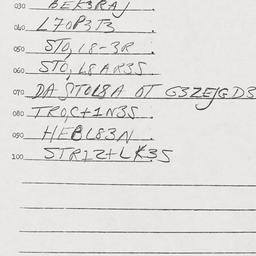 030 BEK3RAJ
040 L70P3T3
050 STO,18-3R
060 STO,L8AR3S
070 DA STOL8A OT G3ZEJGD3
080 TRO,C+1N3S
090 HEBL83N
100 STR12+LK3S